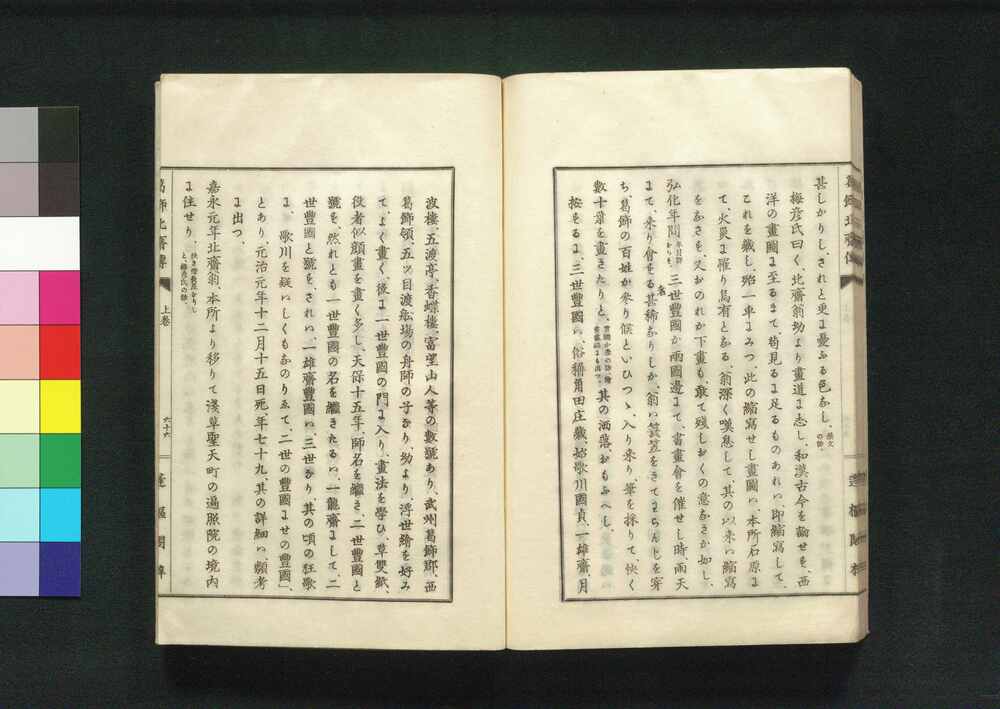 甚しかりし、されと更に憂ふる色なし、戯文の話、
梅彦氏曰く、北齋翁幼より畫道に志し、和漢古今を論せを、西
洋の畫圖に至るまて、苟見るに足るものあれハ、即縮寫して、
これを藏し、殆一車にみつ、此の縮寫せし畫圖ハ、本所石原に
て、火災に罹り烏有となる、翁深く嘆息して、其の以來ハ縮寫
をなさを、又おのれか下畫も、敢て殘しおくの意なきか如し、
弘化年間年月詳からを、三世豐國か兩國邊にて、書畫會を催せし時雨天
にて、來り會をる者甚稀なりしか、翁ハ簑笠をきてわらんじを穿
ち、葛飾の百姓か參り候といひつゝ、入り來り、筆を採りて快く
數十葉を畫きたりと、其の洒落、おもふへし、
按をるに、三世豐國ハ、俗稱角田庄藏、始歌川國貞、一雄齋、月
葛飾北齋傳
上卷
六十六
蓬樞閣梓
波樓、五渡亭、香蝶樓、富望山人等の數號あり、武州葛飾郡、西
葛飾領、五ッ目渡船塲の舟師の子なり、幼より、浮世繪を好み
て、よく畫く、後に一世豐國の門に入り、畫法を學ひ、草雙紙、
役者似顏畫を畫く多し、天保十五年、師名を繼き、二世豐國と
號を、然れとも一世豐國の名を繼きたるハ、一龍齋にして、二
世豐國と號を、されハ、一雄齋豐國ハ、三世なり、其の頃の狂歌
に、歌川を疑ハしくもなのりゑて、二世の豐國にせの豐國、
とあり、元治元年十二月十五日死、年七十九、其の詳細ハ、類考
に出つ、
嘉永元年北齋翁、本所より移りて淺草聖天町の遍照院の境内
に住せり、狹き借長屋なりしと、梅彦氏の話、